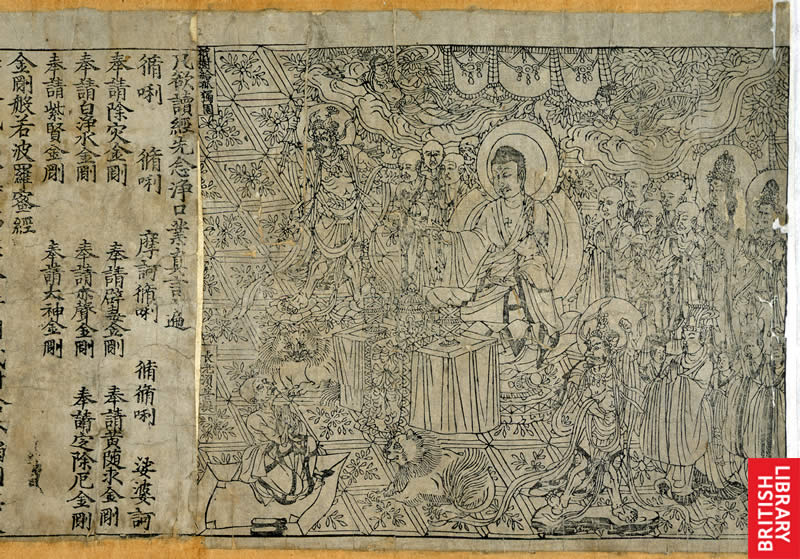 祇樹給孤獨園
凡欲讀經先念淨口業真言一遍
脩唎 脩唎 摩訶脩唎 脩脩唎 娑婆訶
奉請除灾金剛 奉請辟毒金剛 奉請黄随求金剛
奉請白淨水金剛 奉請赤聲金剛 奉請定除厄金剛
奉請紫賢金剛 奉請大神金剛
金剛般若波羅蜜經
BRITISH
LIBRARY